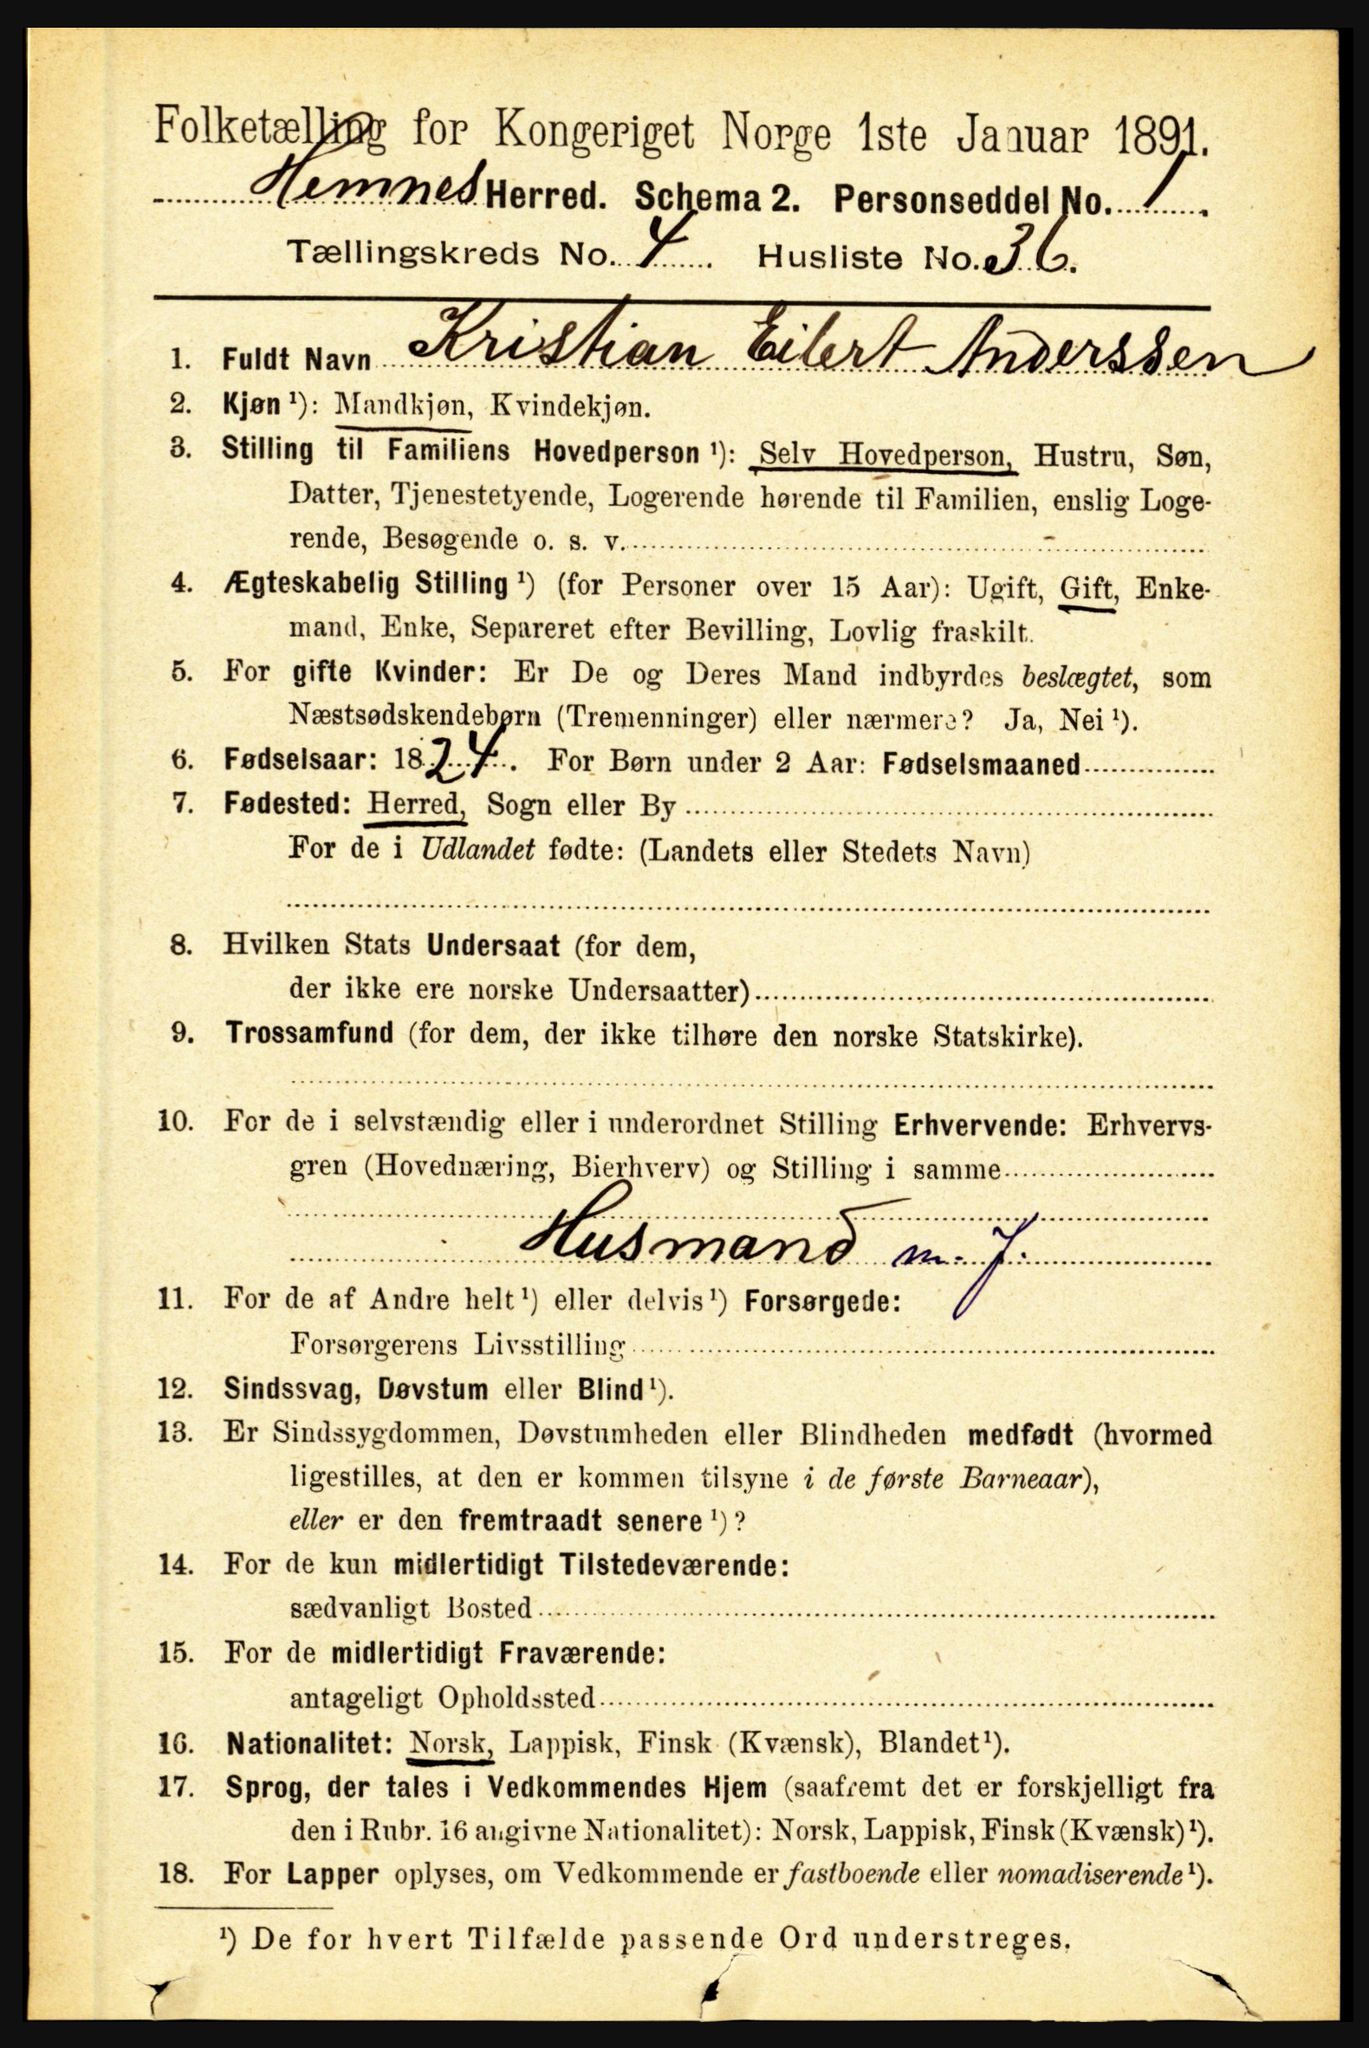 Folketælling for Kongeriget Norge 1ste Januar 1891.
Hemnes Herred. Schema 2. Personseddel No. 1.
Tællingskreds No. 4. Husliste No. 36.
1. Fuldt Navn Kristian Eilert Anderssen
2. Kjøn ¹): Mandkjøn, Kvindekjøn.
3. Stilling til Familiens Hovedperson ¹): Selv Hovedperson, Hustru, Søn,
Datter, Tjenestetyende, Logerende hørende til Familien, enslig Loge-
rende, Besøgende o. s. v.
4. Ægteskabelig Stilling ¹) (for Personer over 15 Aar): Ugift, Gift, Enke-
mand, Enke, Separeret efter Bevilling, Lovlig fraskilt.
5. For gifte Kvinder: Er De og Deres Mand indbyrdes beslægtet, som
Næstsødskendebørn (Tremenninger) eller nærmere? Ja, Nei ¹).
6. Fødselsaar: 1824. For Børn under 2 Aar: Fødselsmaaned
7. Fødested: Herred, Sogn eller By
For de i Udlandet fødte: (Landets eller Stedets Navn)
8. Hvilken Stats Undersaat (for dem,
der ikke ere norske Undersaatter)
9. Trossamfund (for dem, der ikke tilhøre den norske Statskirke).
10. For de i selvstændig eller i underordnet Stilling Erhvervende: Erhvervs-
gren (Hovednæring, Bierhverv) og Stilling i samme
Husmand m. J.
11. For de af Andre helt ¹) eller delvis ¹) Forsørgede:
Forsørgerens Livsstilling
12. Sindssvag, Døvstum eller Blind ¹).
13. Er Sindssygdommen, Døvstumheden eller Blindheden medfødt (hvormed
ligestilles, at den er kommen tilsyne i de første Barneaar),
eller er den fremtraadt senere ¹)?
14. For de kun midlertidigt Tilstedeværende:
sædvanligt Bosted
15. For de midlertidigt Fraværende:
antageligt Opholdssted
16. Nationalitet: Norsk, Lappisk, Finsk (Kvænsk), Blandet ¹).
17. Sprog, der tales i Vedkommendes Hjem (saafremt det er forskjelligt fra
den i Rubr. 16 angivne Nationalitet): Norsk, Lappisk, Finsk (Kvænsk) ¹).
18. For Lapper oplyses, om Vedkommende er fastboende eller nomadiserende ¹).
¹) De for hvert Tilfælde passende Ord understreges.